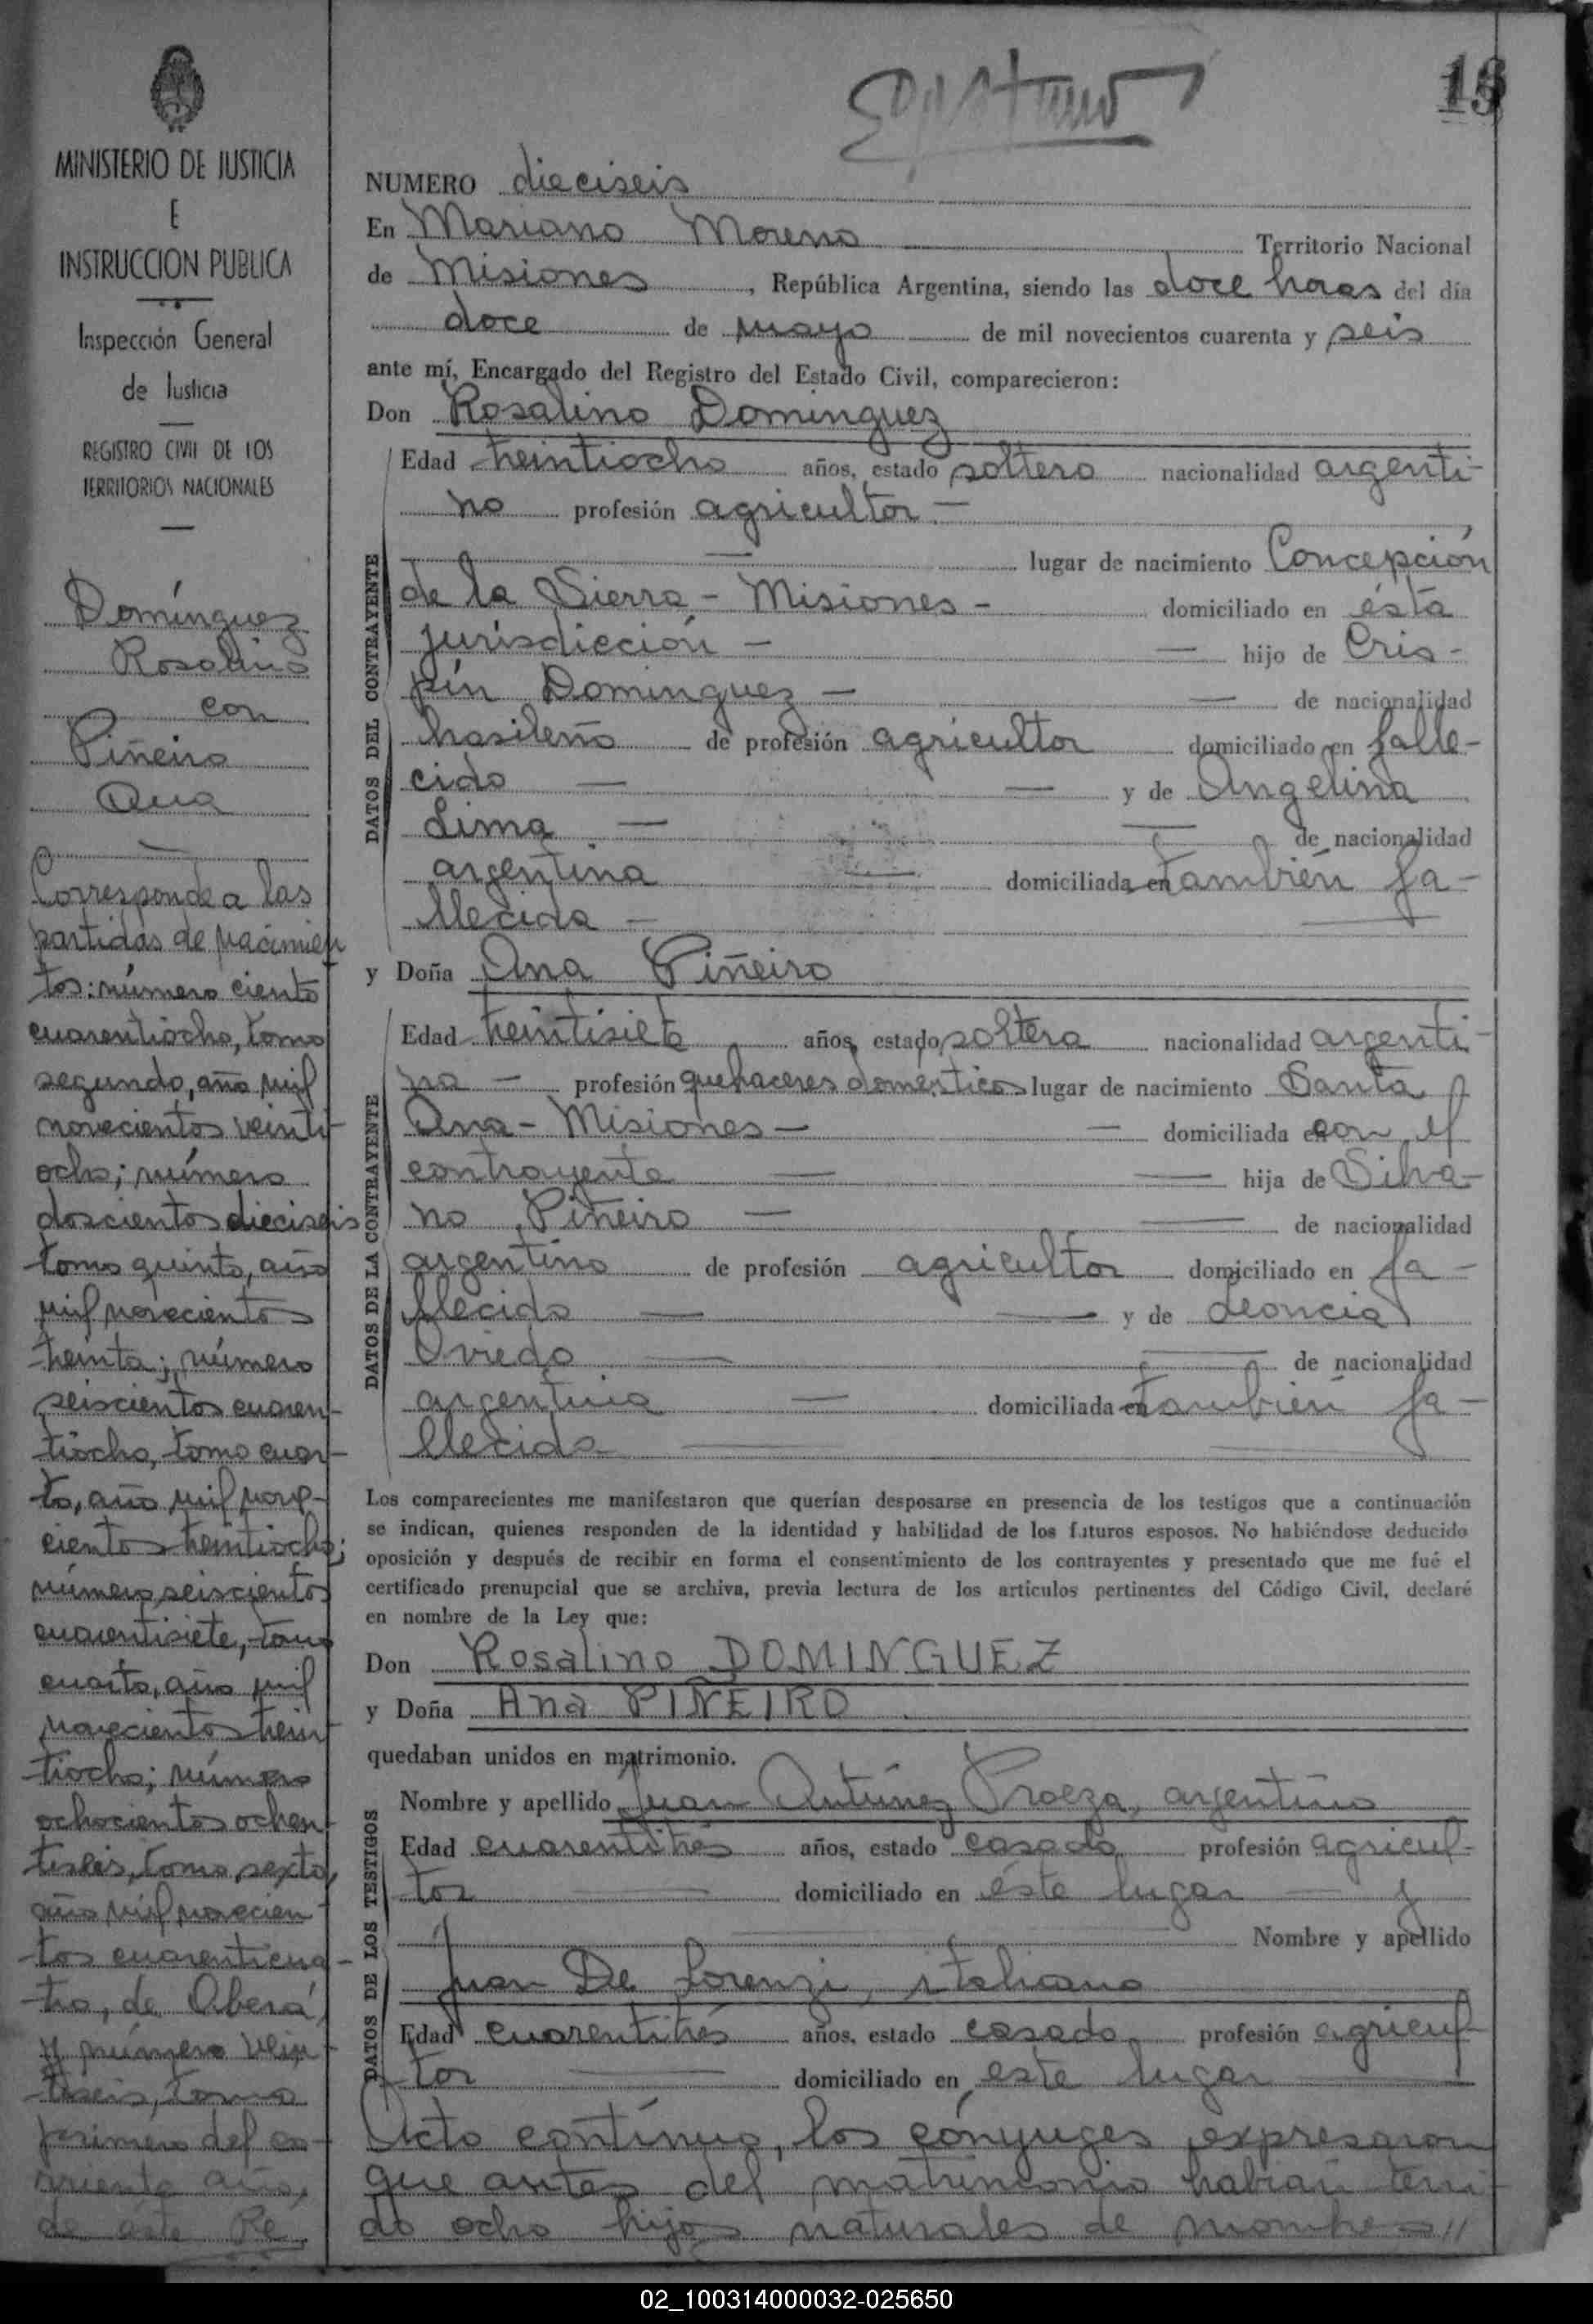 MINISTERIO DE JUSTICIA
E
INSTRUCCION PUBLICA
Inspección General
de Justicia
REGISTRO CIVIL DE LOS
TERRITORIOS NACIONALES
Domínguez
Rosalino
con
Piñeiro
Ana
Corresponde a las
partidas de nacimien
tos: número ciento
cuarentiocho, tomo
segundo, año mil
novecientos veinti-
ocho; número
doscientos dieciseis
tomo quinto, año
mil novecientos
treinta; número
seiscientos cuaren-
tiocho, tomo cuar-
to, año mil nove-
cientos treintiocho;
número seiscientos
cuarentisiete, tomo
cuarto, año mil
novecientos trein
tiocho; número
ochocientos ochen
tiseis, tomo sexto,
año mil novecien
tos cuarenticua-
tro, de Oberá,
y número vein
tiseis, tomo
primero del co-
rriente año,
de este Re
NUMERO dieciseis
En Mariano Moreno Territorio Nacional
de Misiones, República Argentina, siendo las doce horas del día
doce de mayo de mil novecientos cuarenta y seis
ante mí, Encargado del Registro del Estado Civil, comparecieron:
Don Rosalino Dominguez
DATOS DEL CONTRAYENTE
Edad treintiocho años, estado soltero nacionalidad argenti-
no profesión agricultor -
lugar de nacimiento Concepción
de la Sierra - Misiones - domiciliado en ésta
jurisdicción - hijo de Cris-
pín Dominguez - de nacionalidad
brasileño de profesión agricultor domiciliado en falle-
cido - y de Angelina
Lima - de nacionalidad
argentina domiciliada en también fa-
llecida -
y Doña Ana Piñeiro
DATOS DE LA CONTRAYENTE
Edad treintisiete años, estado soltera nacionalidad argenti-
na - profesión quehaceres domésticos lugar de nacimiento Santa
Ana - Misiones - domiciliada en con el
contrayente - hija de Silva-
no Piñeiro - de nacionalidad
argentino de profesión agricultor domiciliado en fa-
llecido - y de Leoncia
Oviedo - de nacionalidad
argentina - domiciliada en también fa-
llecida
Los comparecientes me manifestaron que querían desposarse en presencia de los testigos que a continuación
se indican, quienes responden de la identidad y habilidad de los futuros esposos. No habiéndose deducido
oposición y después de recibir en forma el consentimiento de los contrayentes y presentado que me fué el
certificado prenupcial que se archiva, previa lectura de los artículos pertinentes del Código Civil, declaré
en nombre de la Ley que:
Don Rosalino DOMINGUEZ
y Doña Ana PIÑEIRO
quedaban unidos en matrimonio.
DATOS DE LOS TESTIGOS
Nombre y apellido Juan Antúnez Proeza, argentino
Edad cuarentitrés años, estado casado profesión agricul-
tor domiciliado en éste lugar - y
Nombre y apellido
Juan De Lorenzi, italiano
Edad cuarentitrés años, estado casado, profesión agricul-
tor domiciliado en este lugar
Acto contínuo, los cónyuges expresaron
que antes del matrimonio habían teni
do ocho hijos naturales de nombres //
02_100314000032-025650